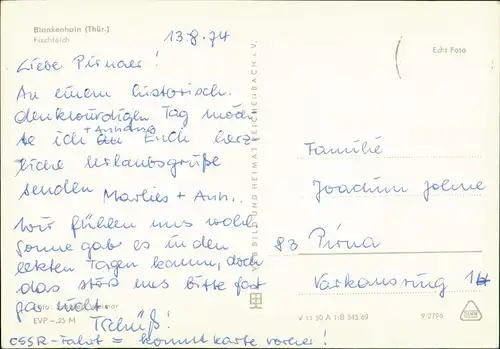 Blankenhain (Thür.)
Fischteich
13.8.74
Liebe Pirnaer!
An einem historisch.
denkwürdigen Tag möch
te ich + Anhang Euch herz
liche Urlaubsgrüße
senden Marlies + Anh..
Wir fühlen uns wohl,
Sonne gab es in den
letzten Tagen kaum, doch
das stört uns bitte fast
gar nicht.
Tschüß!
EVP -,25 M
CSSR-Fahrt = kommt Karte vorher!
VEB BILD UND HEIMAT REICHENBACH i. V.
Echt Foto
Familie
Joachim
83 Pirna
Varkausring
V 11 50 A 1/B 543/69
9/2796